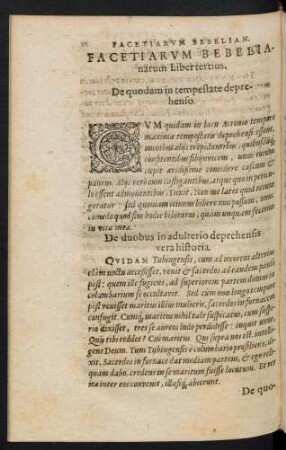 FACETIARVM BEBELIAN.
FACETIARVM BEBELIA-
narum Liber tertius.
De quodam in tempestate depre-
henso.
CVM quidam in lacu Acronio tempore
maximæ tempestatis deprehensi essent,
omnibus alijs trepidantibus,
confitentibus unus
cœpit auidissime comedere caseum &
panem. Alijs verò eum castigantibus, atque quòd pericu-
li essent admonentibus: Inquit. Non me latet quid
geratur: sed quoniam nimium bibere non possum, unum
comedo quod sim hodie bibiturus, quàm unquam
in vita mea.
De duobus in adulterio deprehensis
vera historia.
QVIDAM Tubingensis, cum ad uxorem alterius
clàm noctu accessisset, venit & sacerdos ad eandem paulò
pòst: quem ille fugiens, ad superiorem partem domus in
columbarium se occultauit. Sed cum non longè
pòst venisset maritus illius mulieris, sacerdos in fornacem
confugit. Cumque maritus nihil tale suspicatus, cum
dixisset, tres se aureos ludo perdidisse: inquit uxor.
Quis tibi reddet? Cui maritus. Qui supra nos est, intel-
ligens Deum. Tum Tubingensis è columbario prosiliens, di-
xit. Sacerdos in fornace dat mediam partem, & ego reli-
quam dabo. credens in se maritum fuisse locutum. Et
ita inter eos conuenit, illæsique abierunt.
De quo-